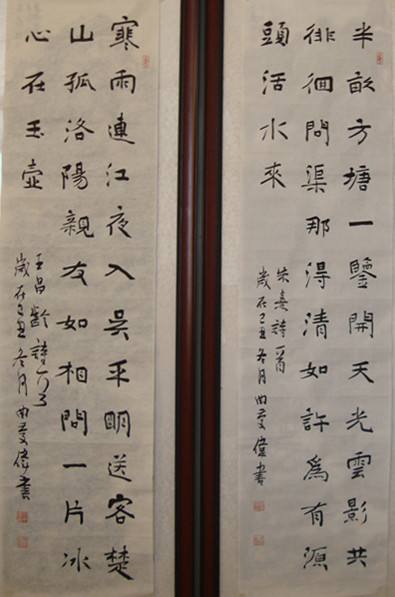 半畝方塘一鑒開天光雲影共
徘徊問渠那得清如許為有源
頭活水來
朱熹詩一首
歲在己丑冬月曲偉書
寒雨連江夜入吳平明送客楚
山孤洛陽親友如相問一片冰
心在玉壺
王昌齡詩
歲在己丑冬月曲偉書